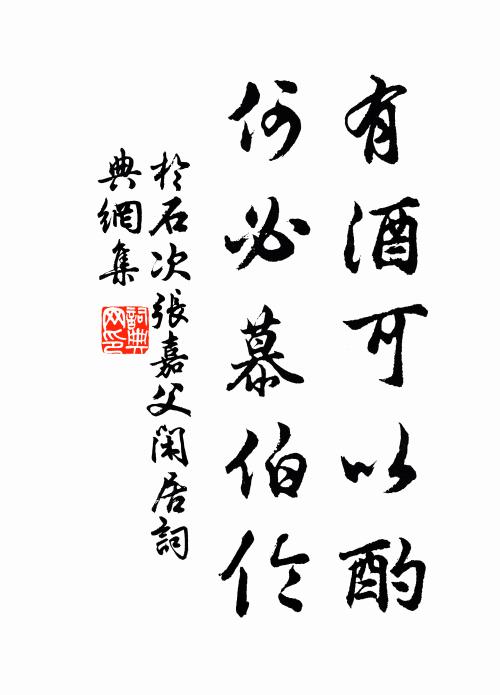 有酒可以酌
何必慕伯伶
於石次張嘉父閑居詞
典網集
詞典
网印